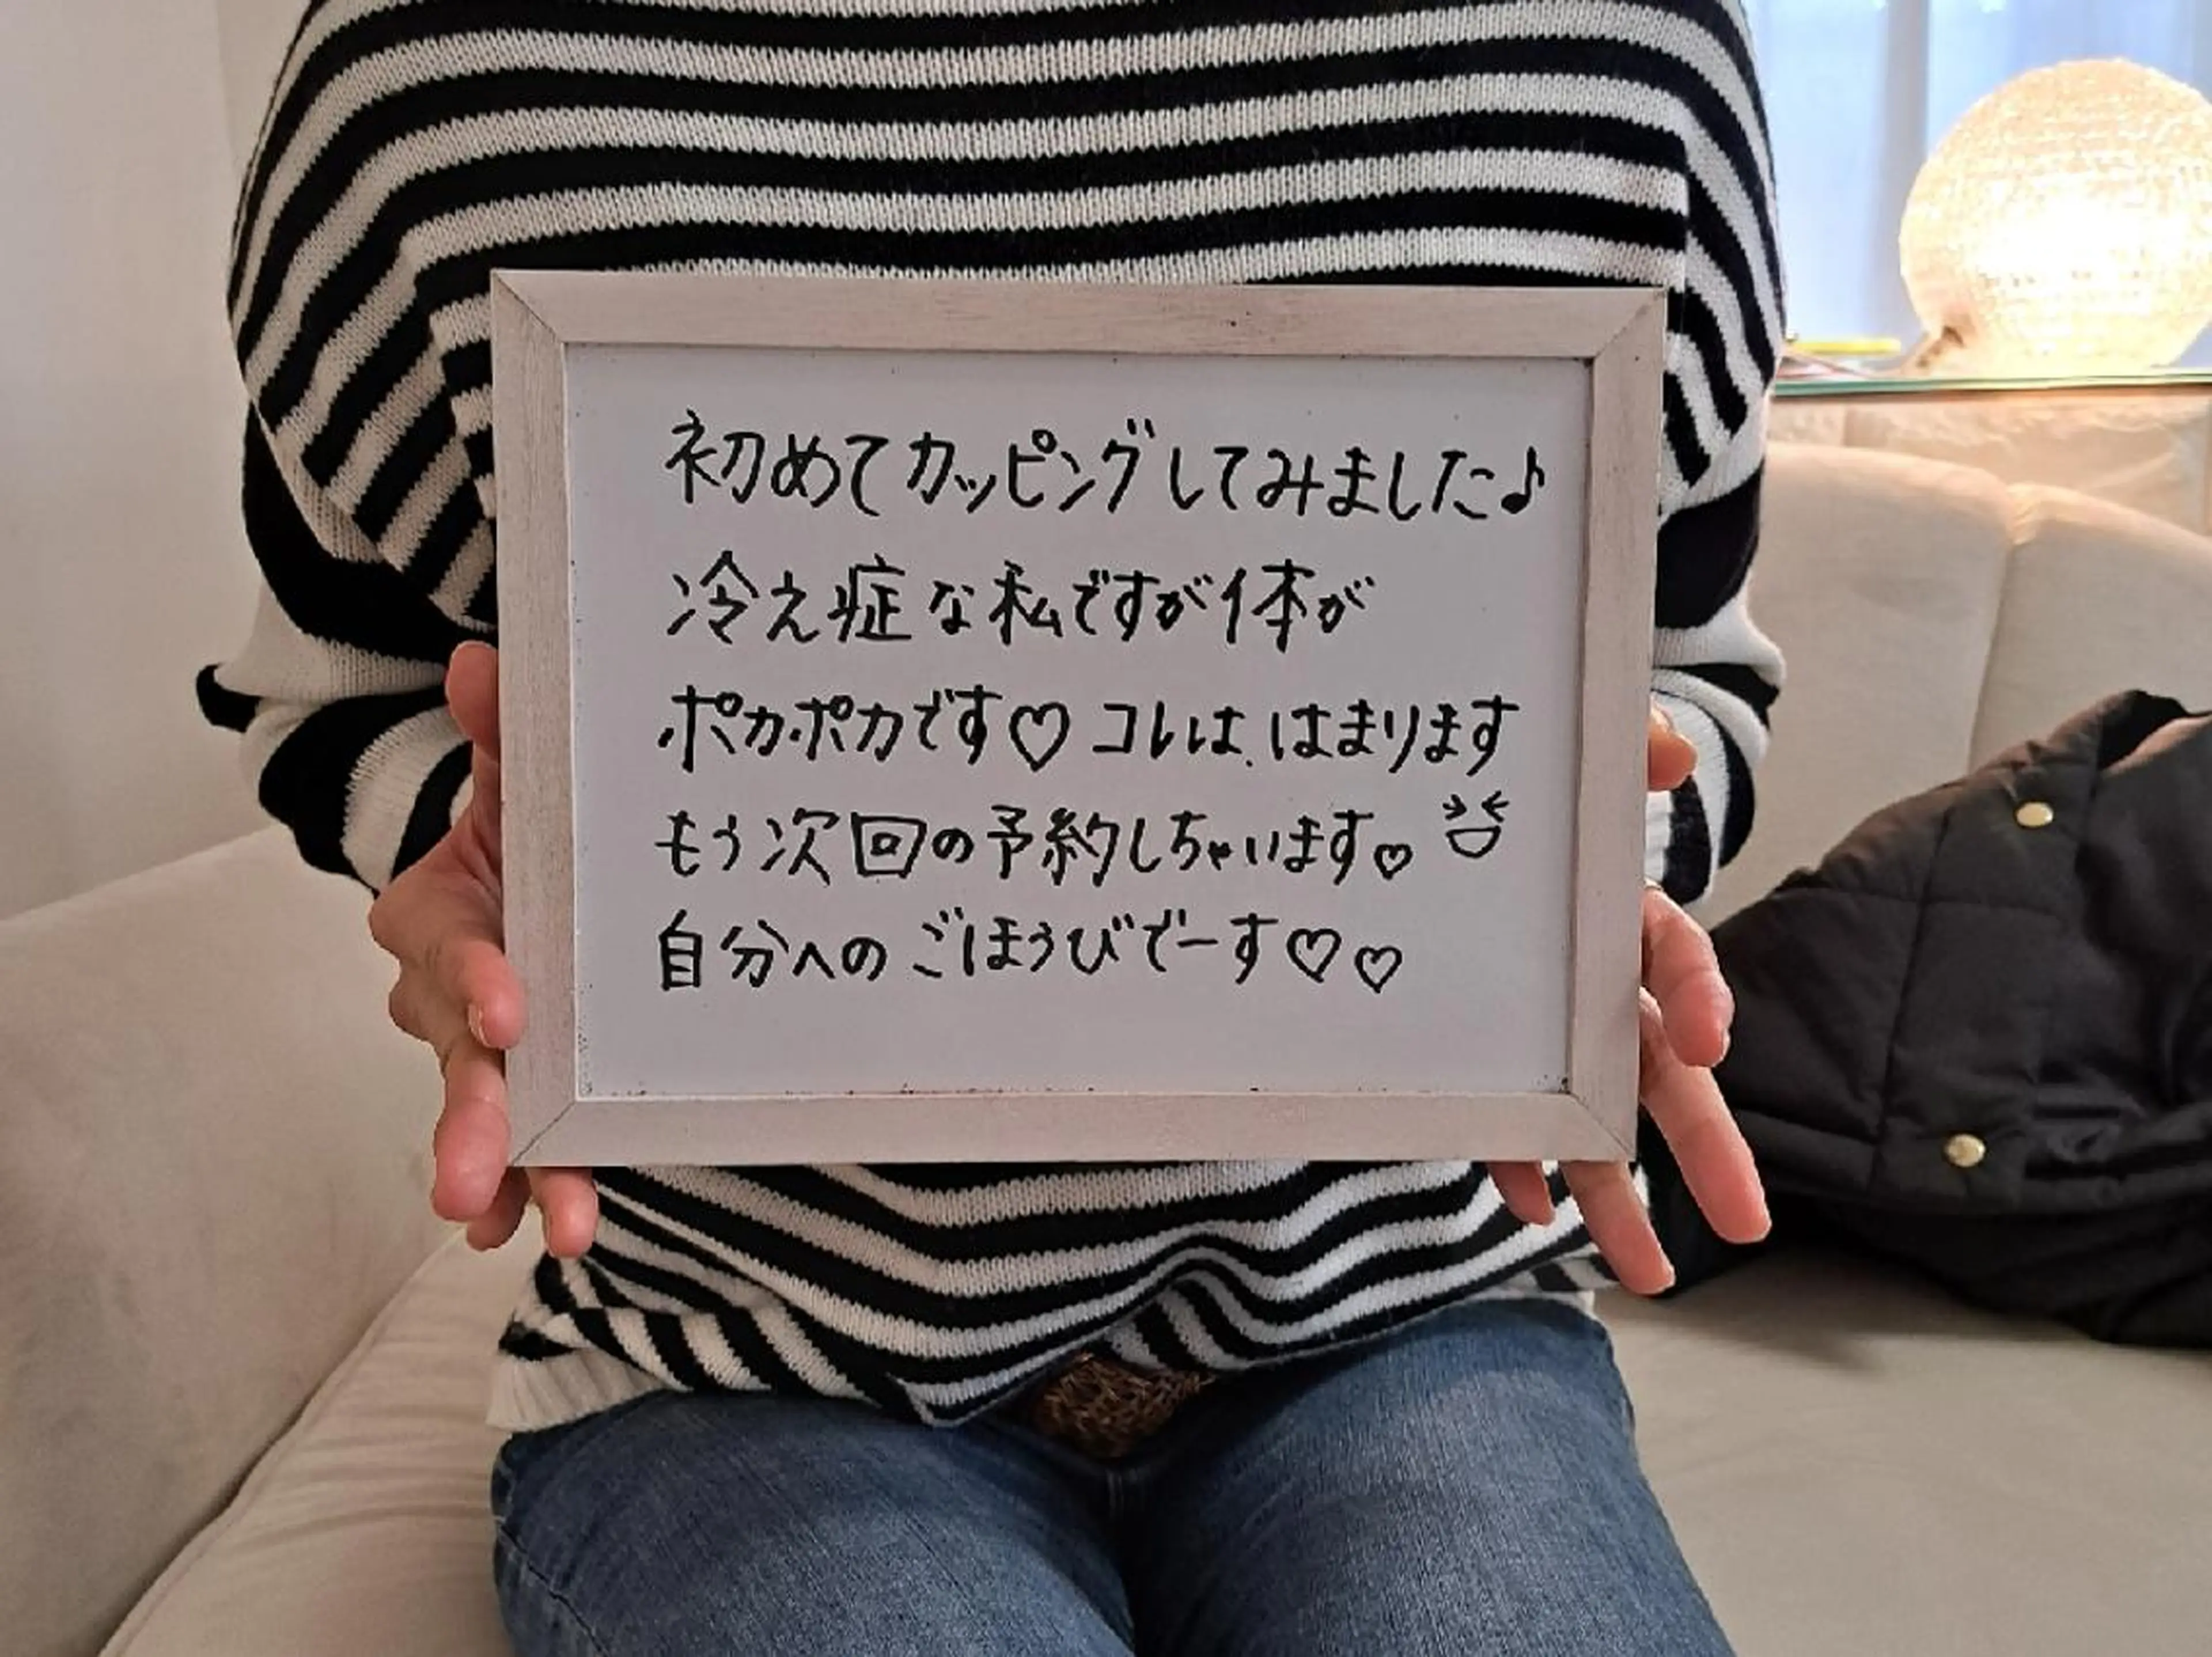 初めてカッピングしてみました♪
冷え症な私ですが体が
ポカポカです♡ コレは、はまります
もう次回の予約しちゃいます♡
自分へのごほうびでーす♡♡